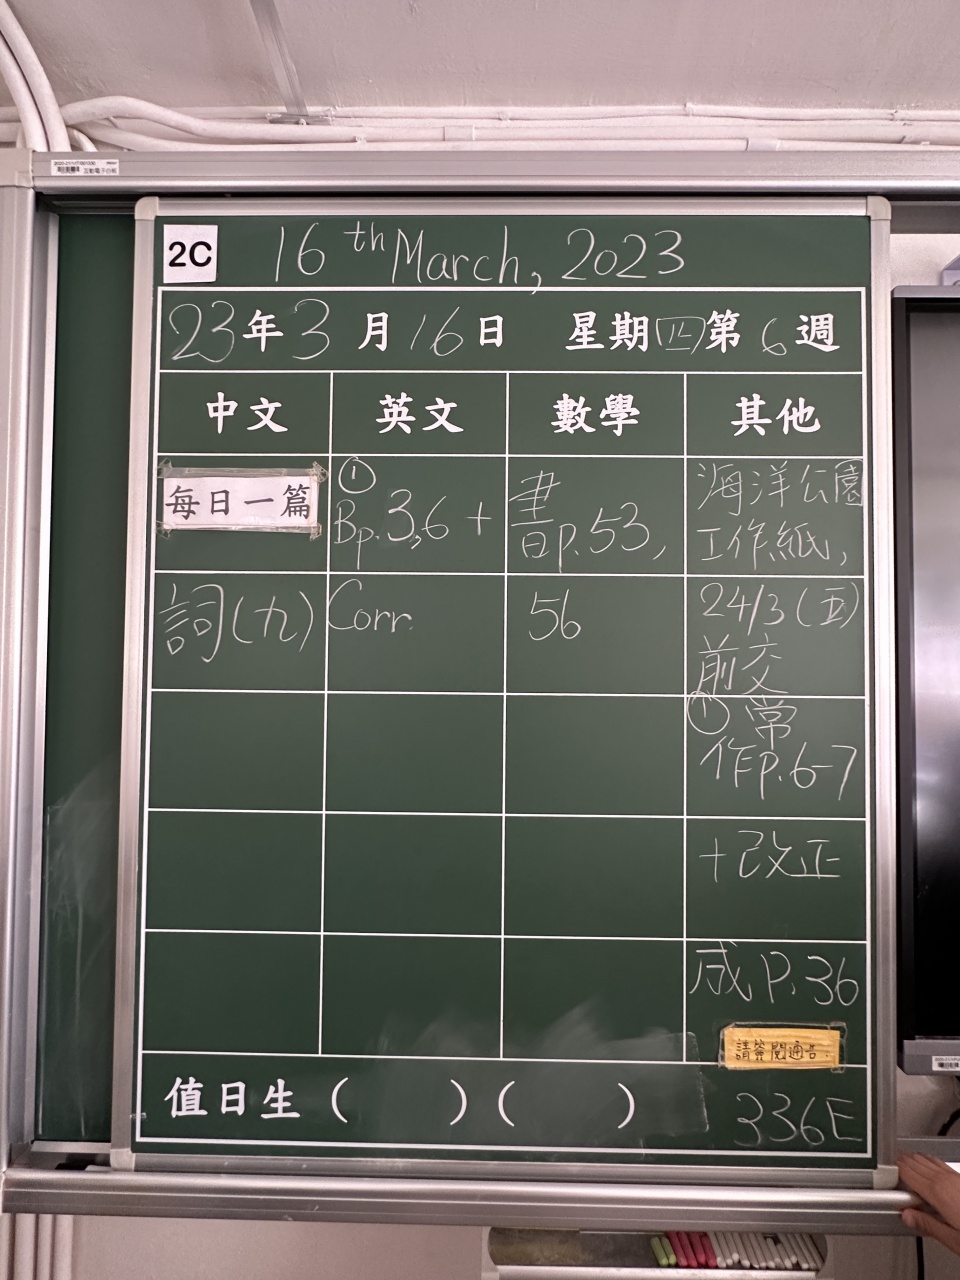 互動電子白板
2C
16th March, 2023
23年3月16日 星期四第6週
中文 英文 數學 其他
每日一篇
① Bp.3,6 +
書p.53,
海洋公園
工作紙,
詞(九)
Corr.
56
24/3 (五)
前交
① 常
作p.6-7
+改正
成 P.36
請簽閱通告:
值日生 ( ) ( )
336E